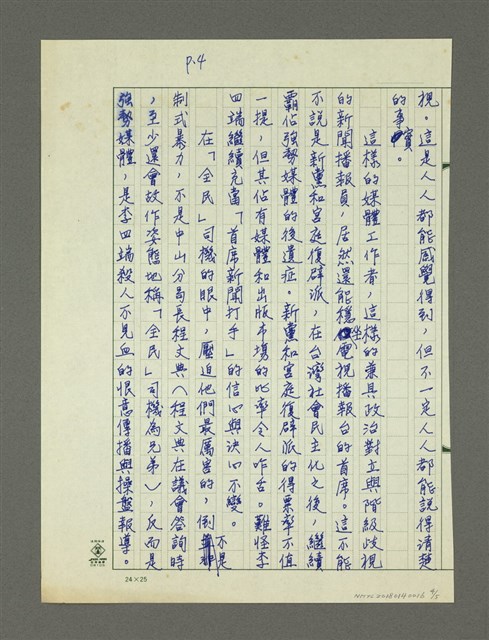 P.4
視。這是人人都能感覺得到，但不一定人人都能說得清楚
的事實。
這樣的媒體工作者，這樣的兼具政治對立與階級歧視
的新聞播報員，居然還能穩坐電視播報台的首席。這不能
不說是新黨和宮庭復辟派，在台灣社會民主化之後，繼續
霸佔強勢媒體的後遺症。新黨和宮庭復辟派的得票率不值
一提，但其佔有媒體和出版市場的比率令人咋舌。難怪李
四端繼續充當「首席新聞打手」的信心與決心不變。
在「全民」司機的眼中，壓迫他們最厲害的，倒不是
制式暴力，不是中山分局長程文典（程文典在議會答詢時
，至少還會故作姿態地稱「全民」司機為兄弟），反而是
強勢媒體，是李四端殺人不見血的恨意傳播與操盤報導。
24×25